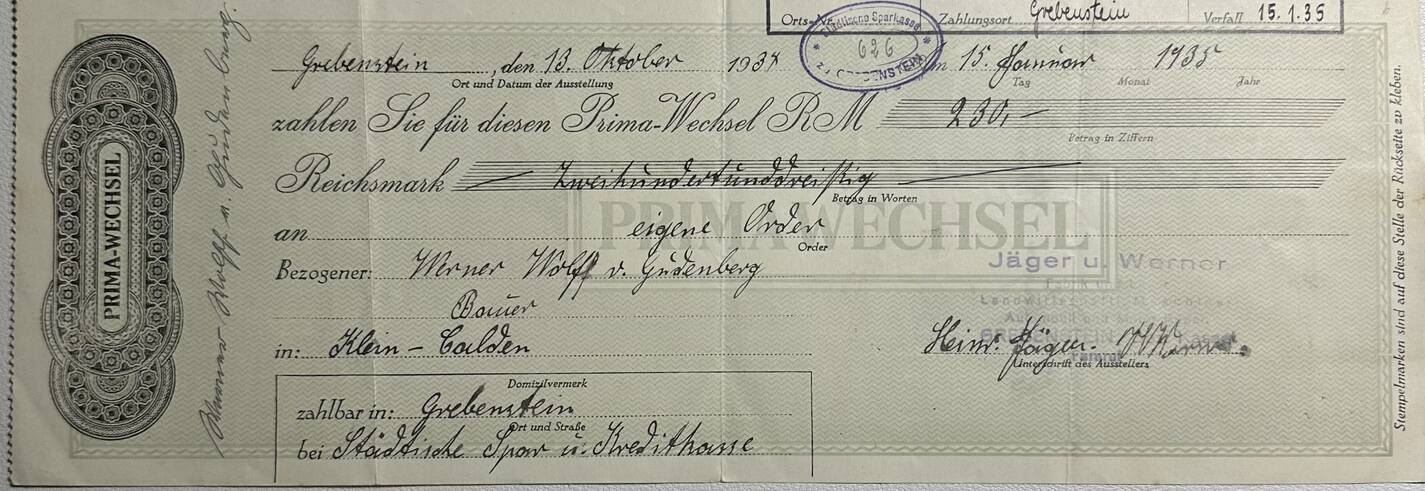 Orts-Nr. Zahlungsort Grebenstein Verfall 15.1.35
Städtische Sparkasse
626
GREBENSTEIN
Grebenstein, den 13. Oktober 1934 Am 15. Januar 1935
Ort und Datum der Ausstellung Tag Monat Jahr
zahlen Sie für diesen Prima-Wechsel RM 230,-
Betrag in Ziffern
Reichsmark — Zweihundertunddreißig —
Betrag in Worten
PRIMA-WECHSEL
an eigene Order
Order
Bezogener: Werner Wolff v. Gudenberg
Bauer
in: Klein-Calden
Jäger u. Werner
GREBENSTEIN
Heinr. Jäger.
Unterschrift des Ausstellers
Domizilvermerk
zahlbar in: Grebenstein
Ort und Straße
bei Städtische Spar u. Kreditkasse
PRIMA-WECHSEL
Werner Wolff v. Gudenberg.
Stempelmarken sind auf diese Stelle der Rückseite zu kleben.